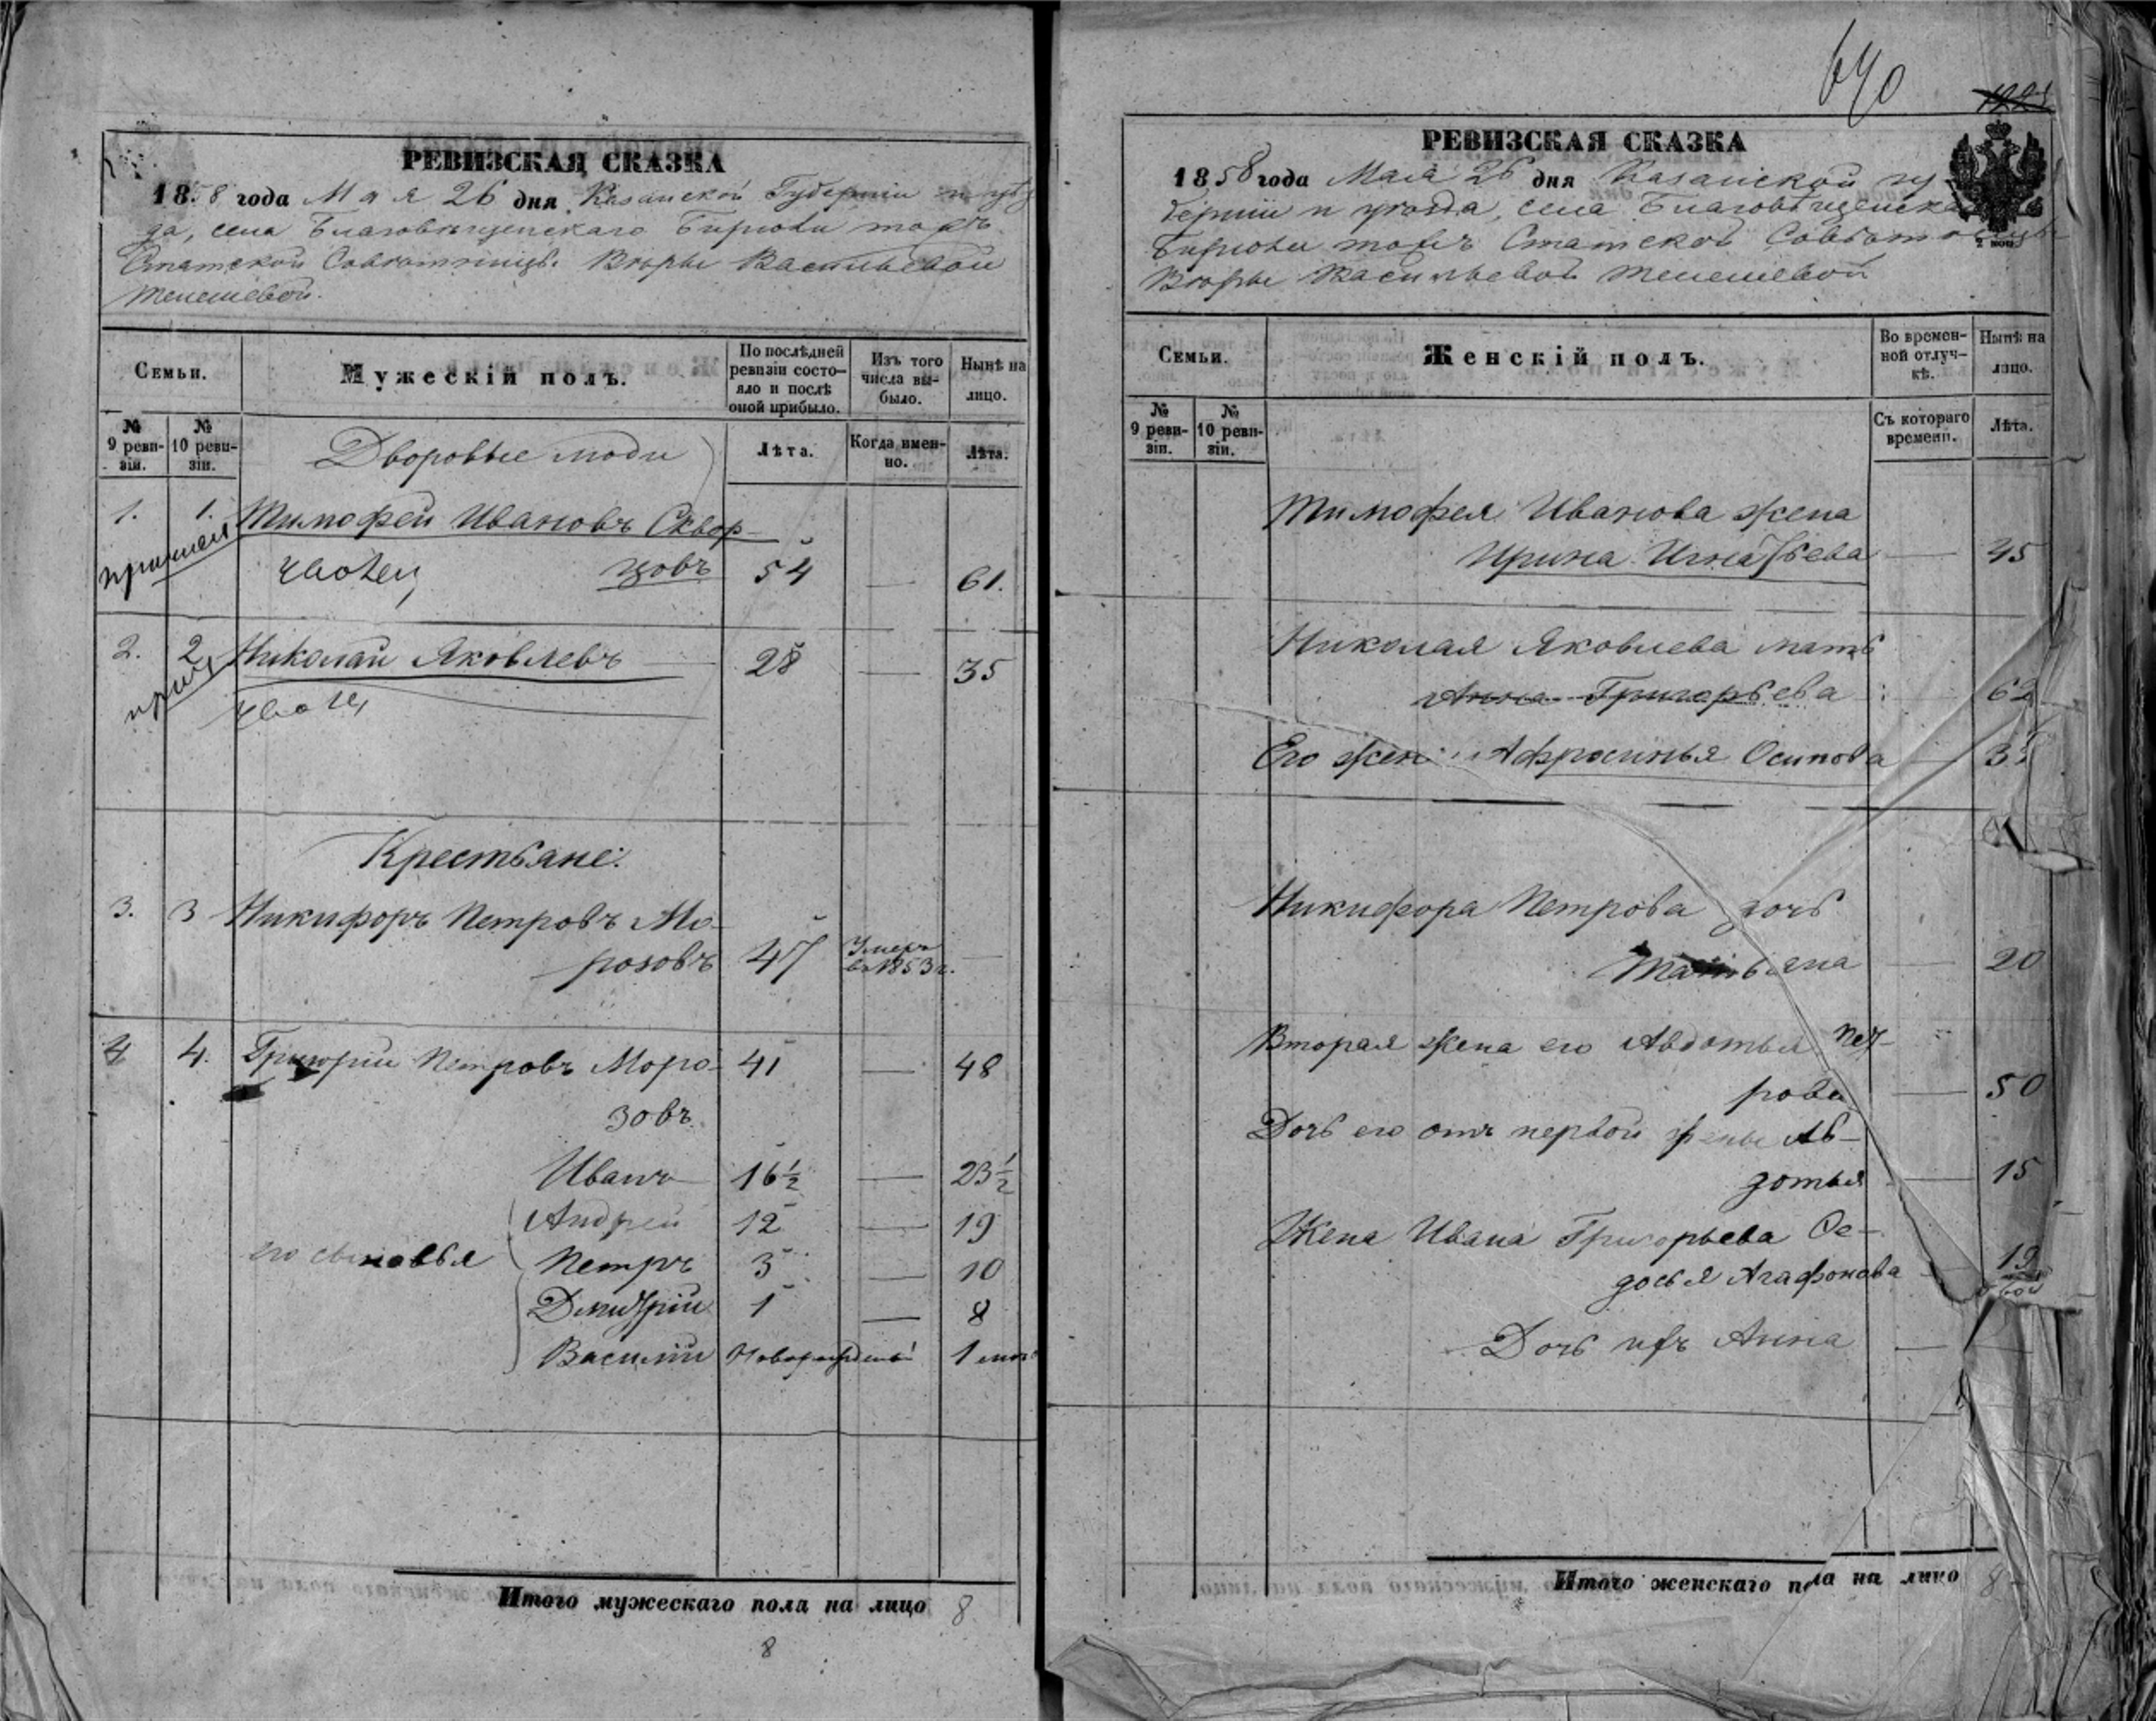 РЕВИЗСКАЯ СКАЗКА
1858 года Мая 26 дня Казанской Губернiи и уѣз
да, села Благовѣщенскаго Бирюли тожъ
Статской Совѣтницы Вѣры Васильевой
Телешевой.
Семьи.
Мужескiй полъ.
По послѣдней ревизiи состо-
яло и послѣ
оной прибыло.
Изъ того
числа вы-
было.
Нынѣ на
лицо.
№
9 реви-
зiи.
№
10 реви-
зiи.
Дворовые люди
Лѣта.
Когда имен-
но.
Лѣта.
1. 1. Тимофей Ивановъ Сквор-
цовъ 54 — 61.
2. 2 Николай Яковлевъ 28 — 35
Крестьяне:
3. 3 Никифоръ Петровъ Мо-
розовъ 47 Умеръ
въ 1853 г. —
4 4. Григорiй Петровъ Моро- 41 — 48
зовъ
Иванъ 16½ — 23½
Андрей 12 — 19
его сыновья Петръ 3 — 10
Дмитрiй 1 — 8
Василiй Новорожденный 1
Итого мужескаго пола на лицо 8
8
640
РЕВИЗСКАЯ СКАЗКА
1858 года Мая 26 дня Казанской гу-
бернiи и уѣзда, села Благовѣщенска
Бирюли тожъ Статской Совѣтницы
Вѣры Васильевой Телешевой
Семьи.
Женскiй полъ.
Во времен-
ной отлуч-
кѣ.
Нынѣ на
лицо.
№
9 реви-
зiи.
№
10 реви-
зiи.
Съ котораго
времени.
Лѣта.
Тимофея Иванова жена
Ирина Игнатьева — 45
Николая Яковлева мать
Анна Григорьева 62
Его жена Афросинья Осипова — 3
Никифора Петрова дочь
Татьяна — 20
Вторая жена его Авдотья Пет-
рова — 50
Дочь его отъ первой жены Ав-
дотья — 15
Жена Ивана Григорьева Ѳе-
досья Агафонова 19
Дочь ихъ Анна —
Итого женскаго пола на лицо 8